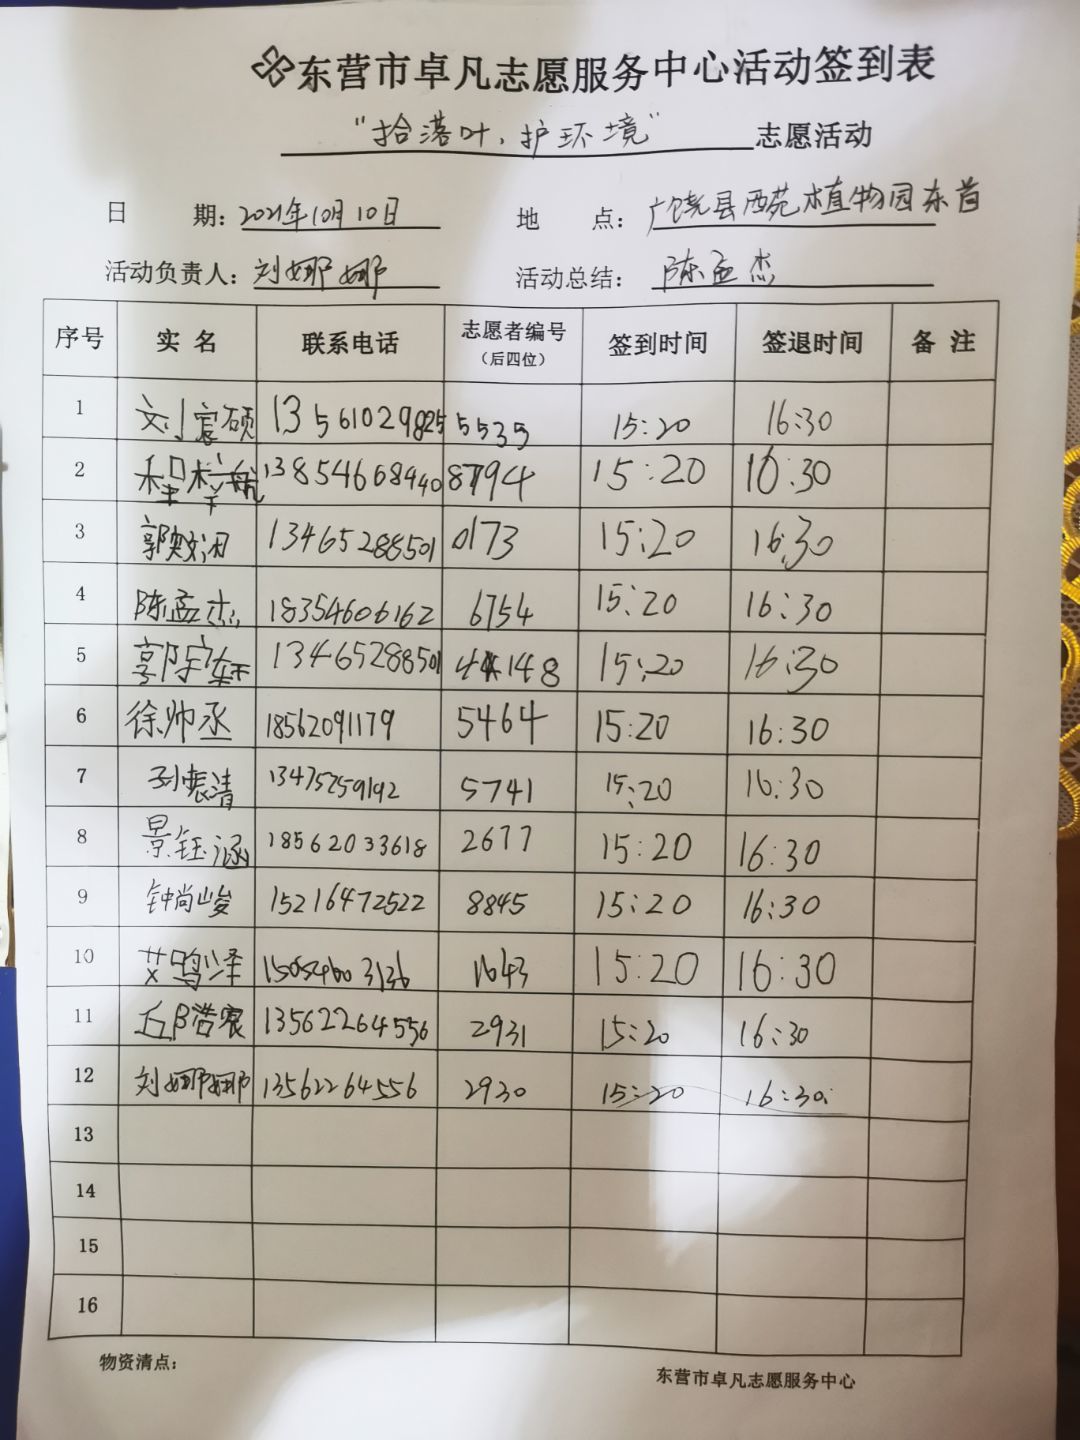 东营市卓凡志愿服务中心活动签到表
“拾落叶，护环境” 志愿活动
日 期：2021年10月10日 地 点：广饶县西苑植物园东首
活动负责人：刘娜娜 活动总结：陈孟杰
序号 实名 联系电话 志愿者编号（后四位） 签到时间 签退时间 备注
1 刘宸硕 13561029825 5535 15:20 16:30
2 程梓航 13854668440 8794 15:20 16:30
3 郭 13465288501 0173 15:20 16:30
4 陈孟杰 18354606162 6754 15:20 16:30
5 郭宇轩 13465288501 4148 15:20 16:30
6 徐帅丞 18562091179 5464 15:20 16:30
7 孙振清 13475259192 5741 15:20 16:30
8 景钰涵 18562033618 2677 15:20 16:30
9 钟尚峻 15216472522 8845 15:20 16:30
10 艾鸣泽 15:20 16:30
11 丘浩宸 13562264556 2931 15:20 16:30
12 刘娜娜 13562264556 2930 15:20 16:30
13
14
15
16
物资清点： 东营市卓凡志愿服务中心